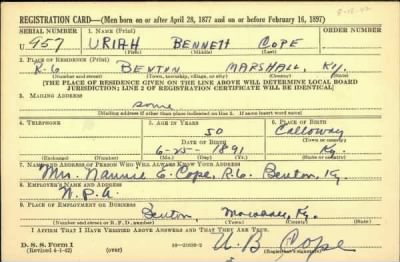 REGISTRATION CARD—(Men born on or after April 28, 1877 and on or before February 16, 1897)
SERIAL NUMBER 1. NAME (Print) ORDER NUMBER
U 957 URIAH BENNETT COPE
(First) (Middle) (Last)
2. PLACE OF RESIDENCE (Print)
R-6 BENTON MARSHALL, KY.
(Number and street) (Town, township, village, or city) (County) (State)
[THE PLACE OF RESIDENCE GIVEN ON THE LINE ABOVE WILL DETERMINE LOCAL BOARD
JURISDICTION; LINE 2 OF REGISTRATION CERTIFICATE WILL BE IDENTICAL]
3. MAILING ADDRESS
same
[Mailing address if other than place indicated on line 2. If same insert word same]
4. TELEPHONE 5. AGE IN YEARS 6. PLACE OF BIRTH
50 Calloway
DATE OF BIRTH (Town or county)
6-25-1891 Ky.
(Exchange) (Number) (Mo.) (Day) (Yr.) (State or country)
7. NAME AND ADDRESS OF PERSON WHO WILL ALWAYS KNOW YOUR ADDRESS
Mrs. Nannie E. Cope, R.6. Benton, Ky.
8. EMPLOYER'S NAME AND ADDRESS
W.P.A.
9. PLACE OF EMPLOYMENT OR BUSINESS
Benton, Ky.
(Number and street or R. F. D. number) (Town) (County) (State)
I AFFIRM THAT I HAVE VERIFIED ABOVE ANSWERS AND THAT THEY ARE TRUE.
D. S. S. Form 1
(Revised 4-1-42) (over) U B Cope